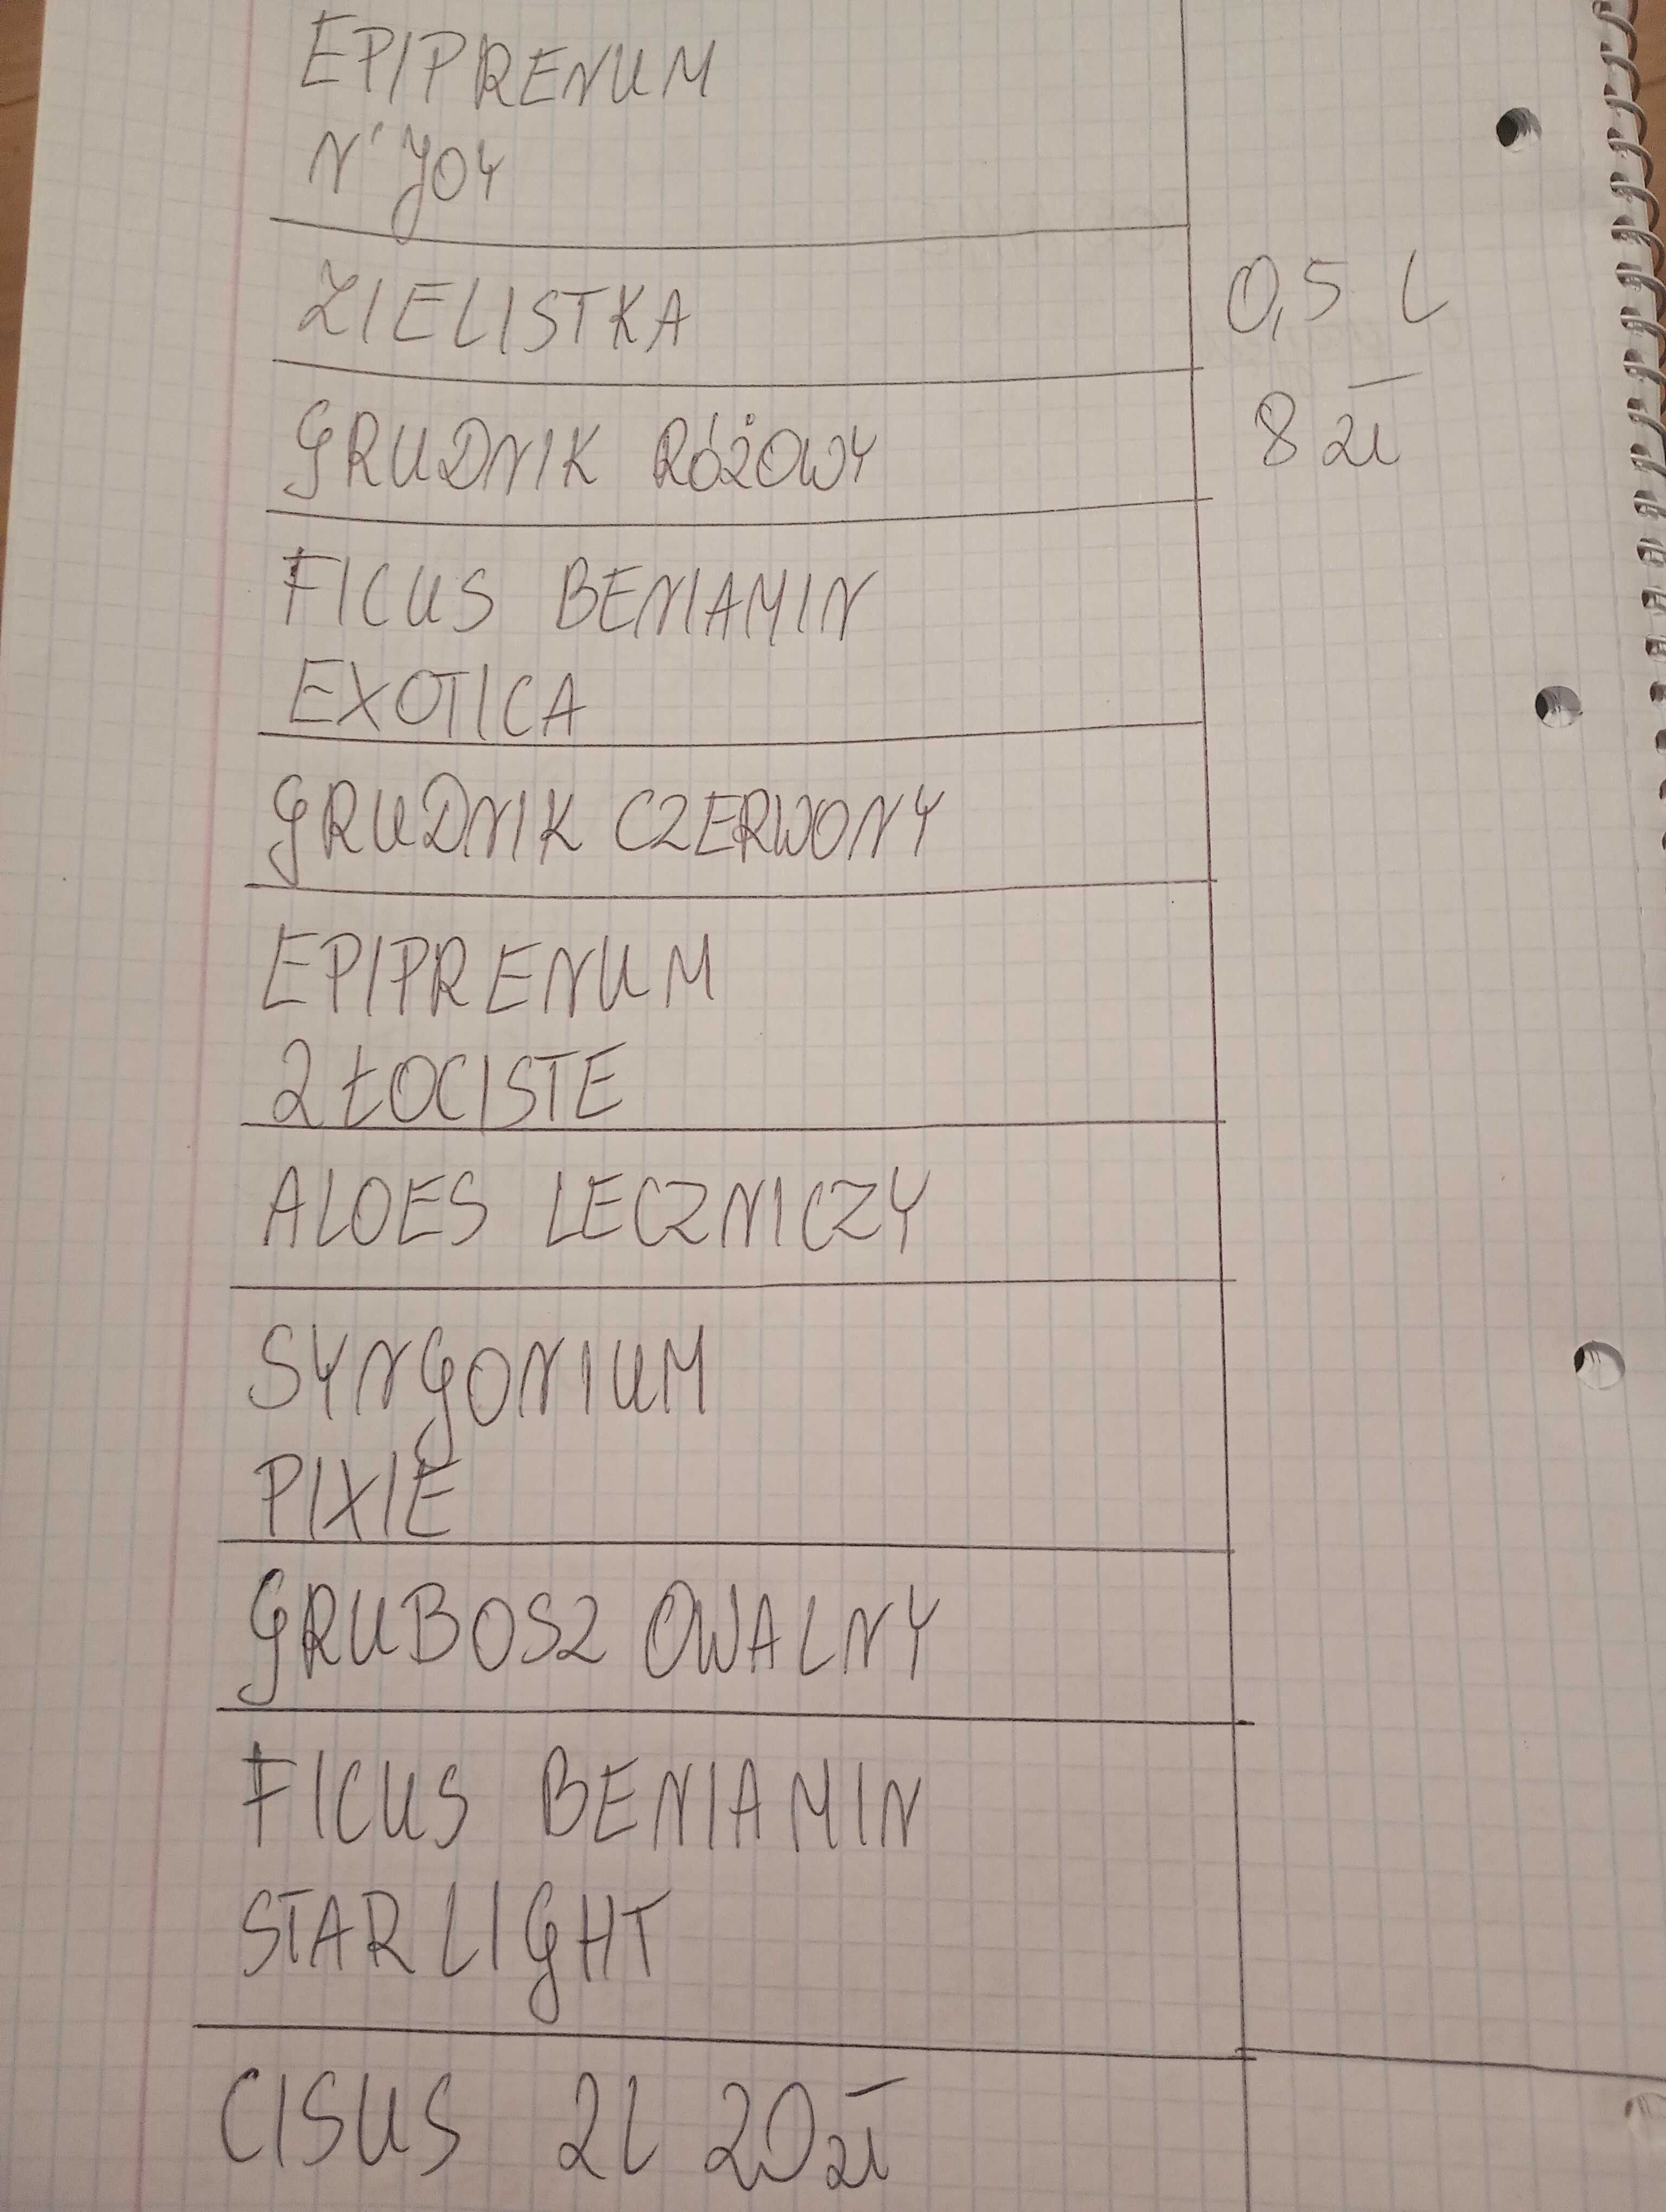 EPIPRENUM
N'JOY
ZIELISTKA
0,5 L
GRUDNIK RÓŻOWY
8 zł
FICUS BENIAMIN
EXOTICA
GRUDNIK CZERWONY
EPIPRENUM
ZŁOCISTE
ALOES LECZNICZY
SYNGONIUM
PIXIE
GRUBOSZ OWALNY
FICUS BENIAMIN
STARLIGHT
CISUS 2L 20zł